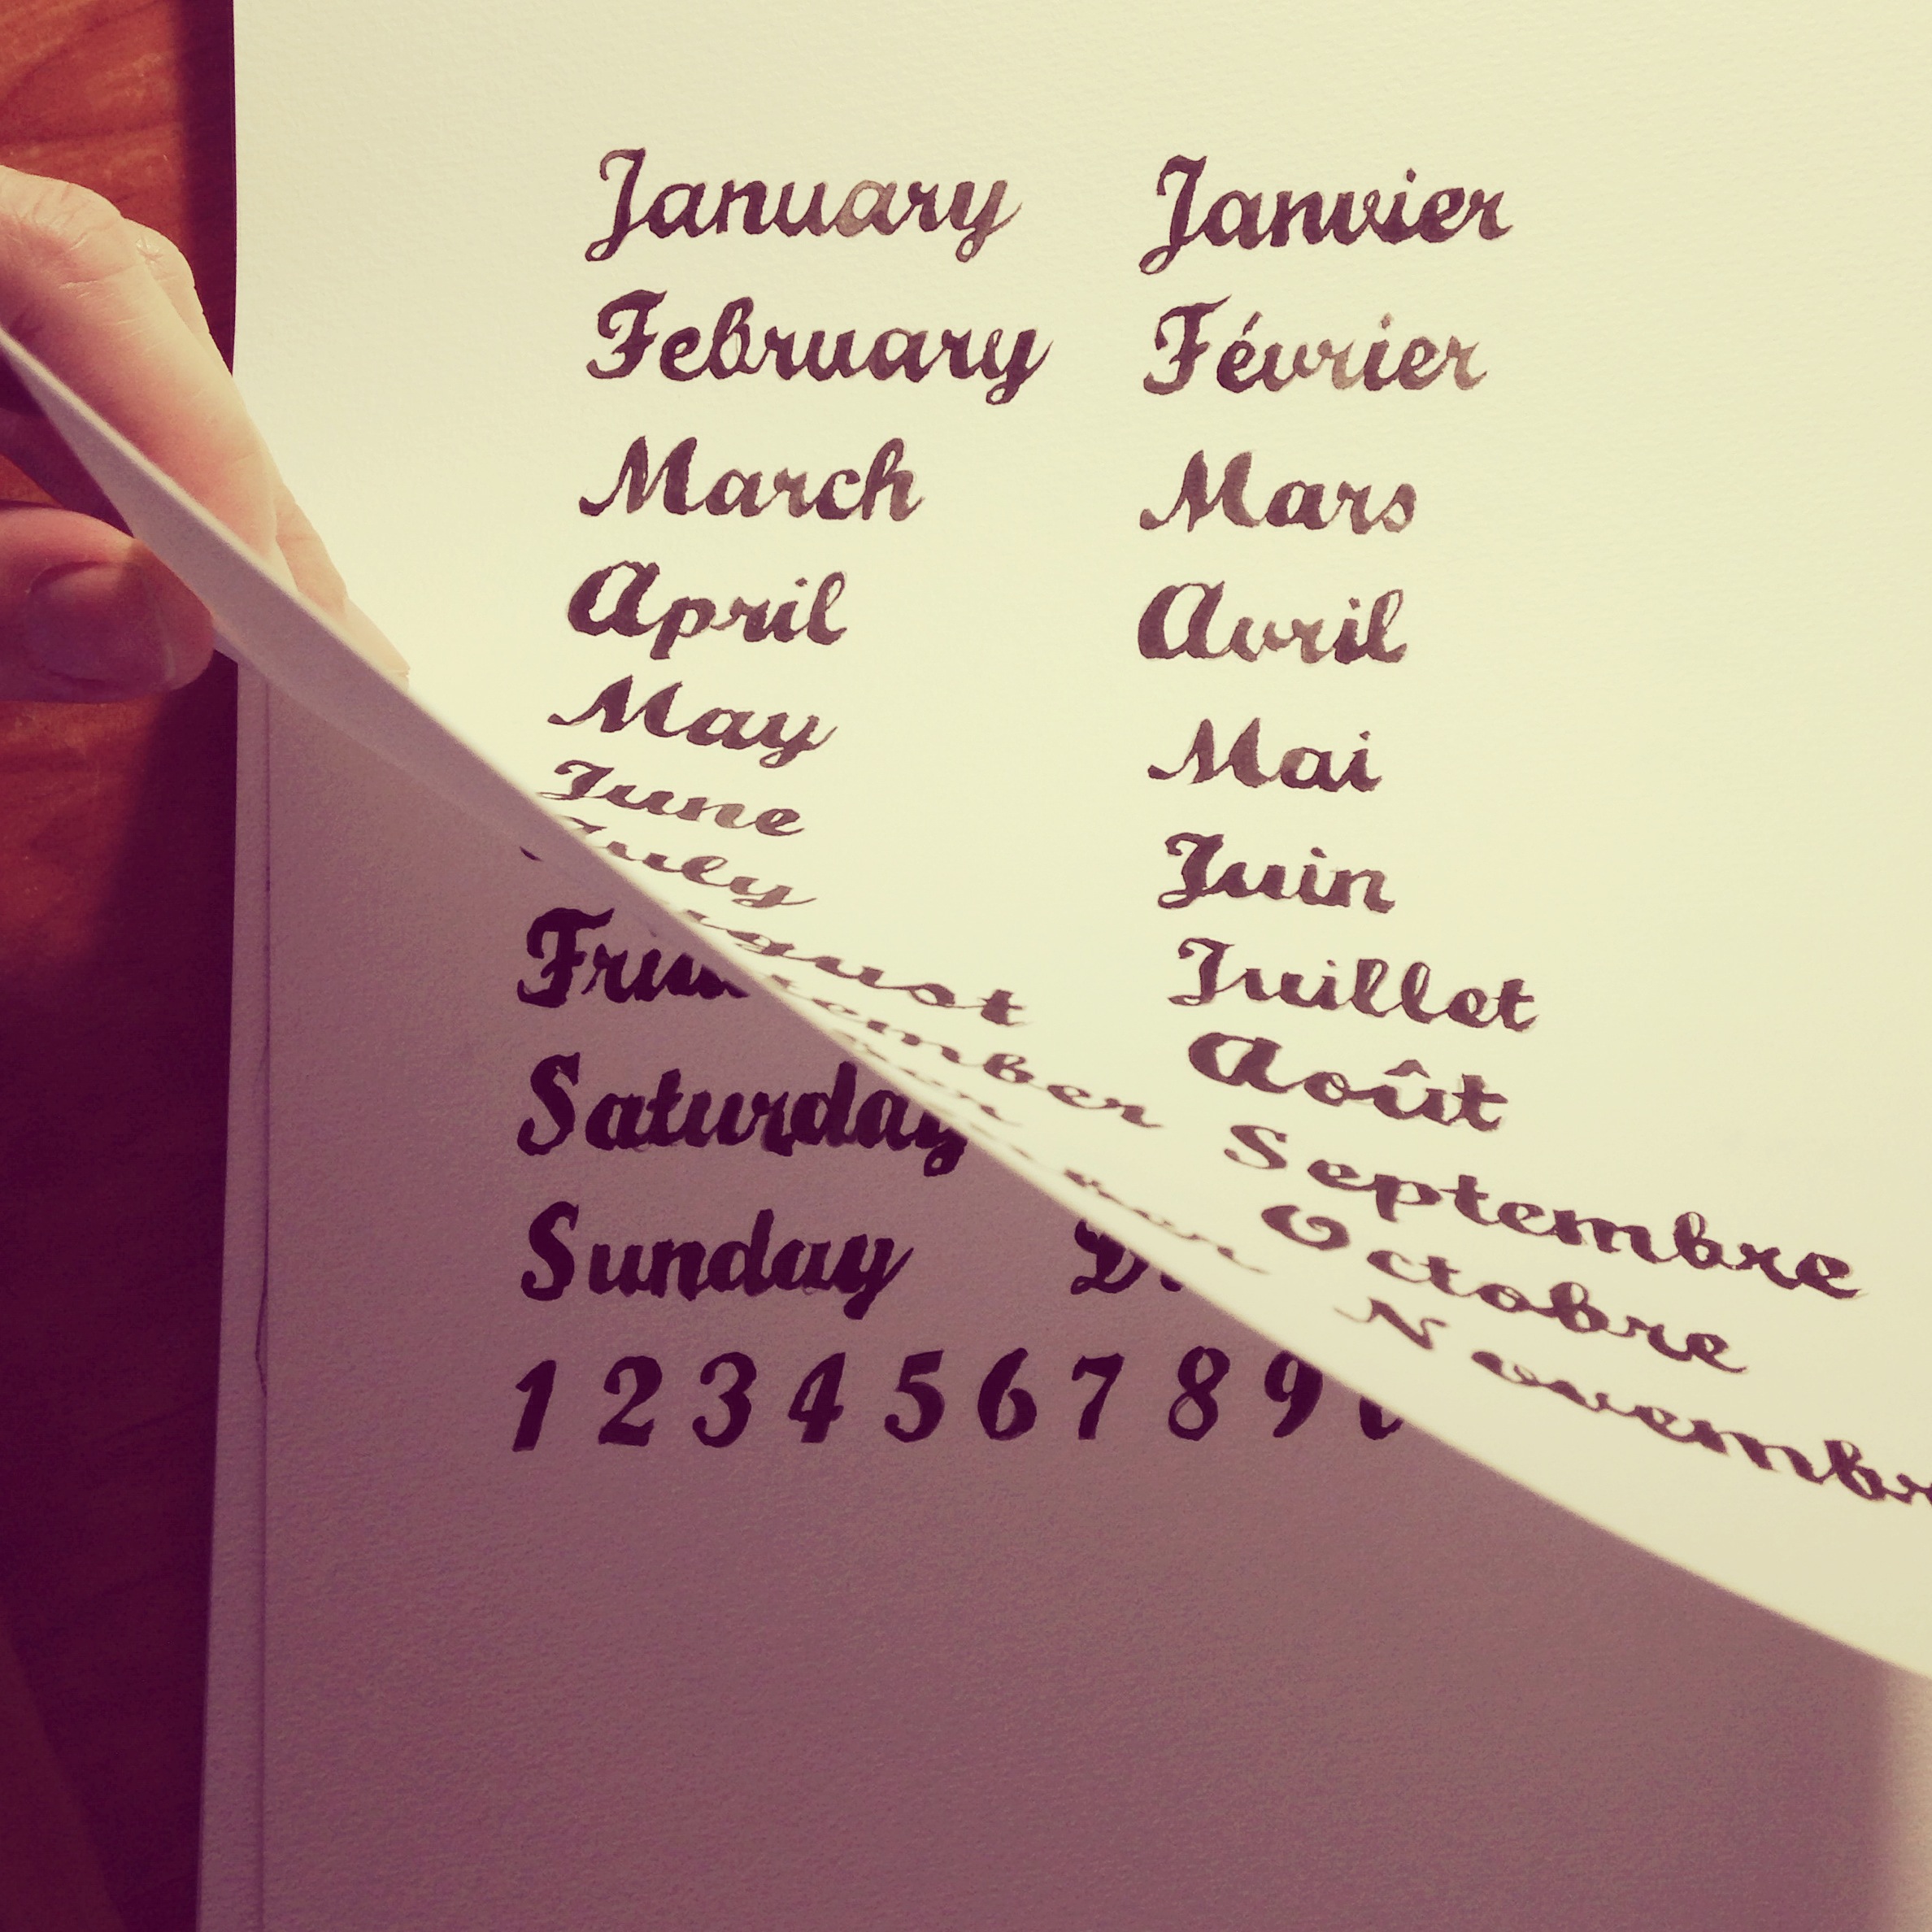 January Janvier
February Février
March Mars
April Avril
May Mai
June Juin
July Juillet
Août
Septembre
Octobre
Saturday
Sunday
1 2 3 4 5 6 7 8 9